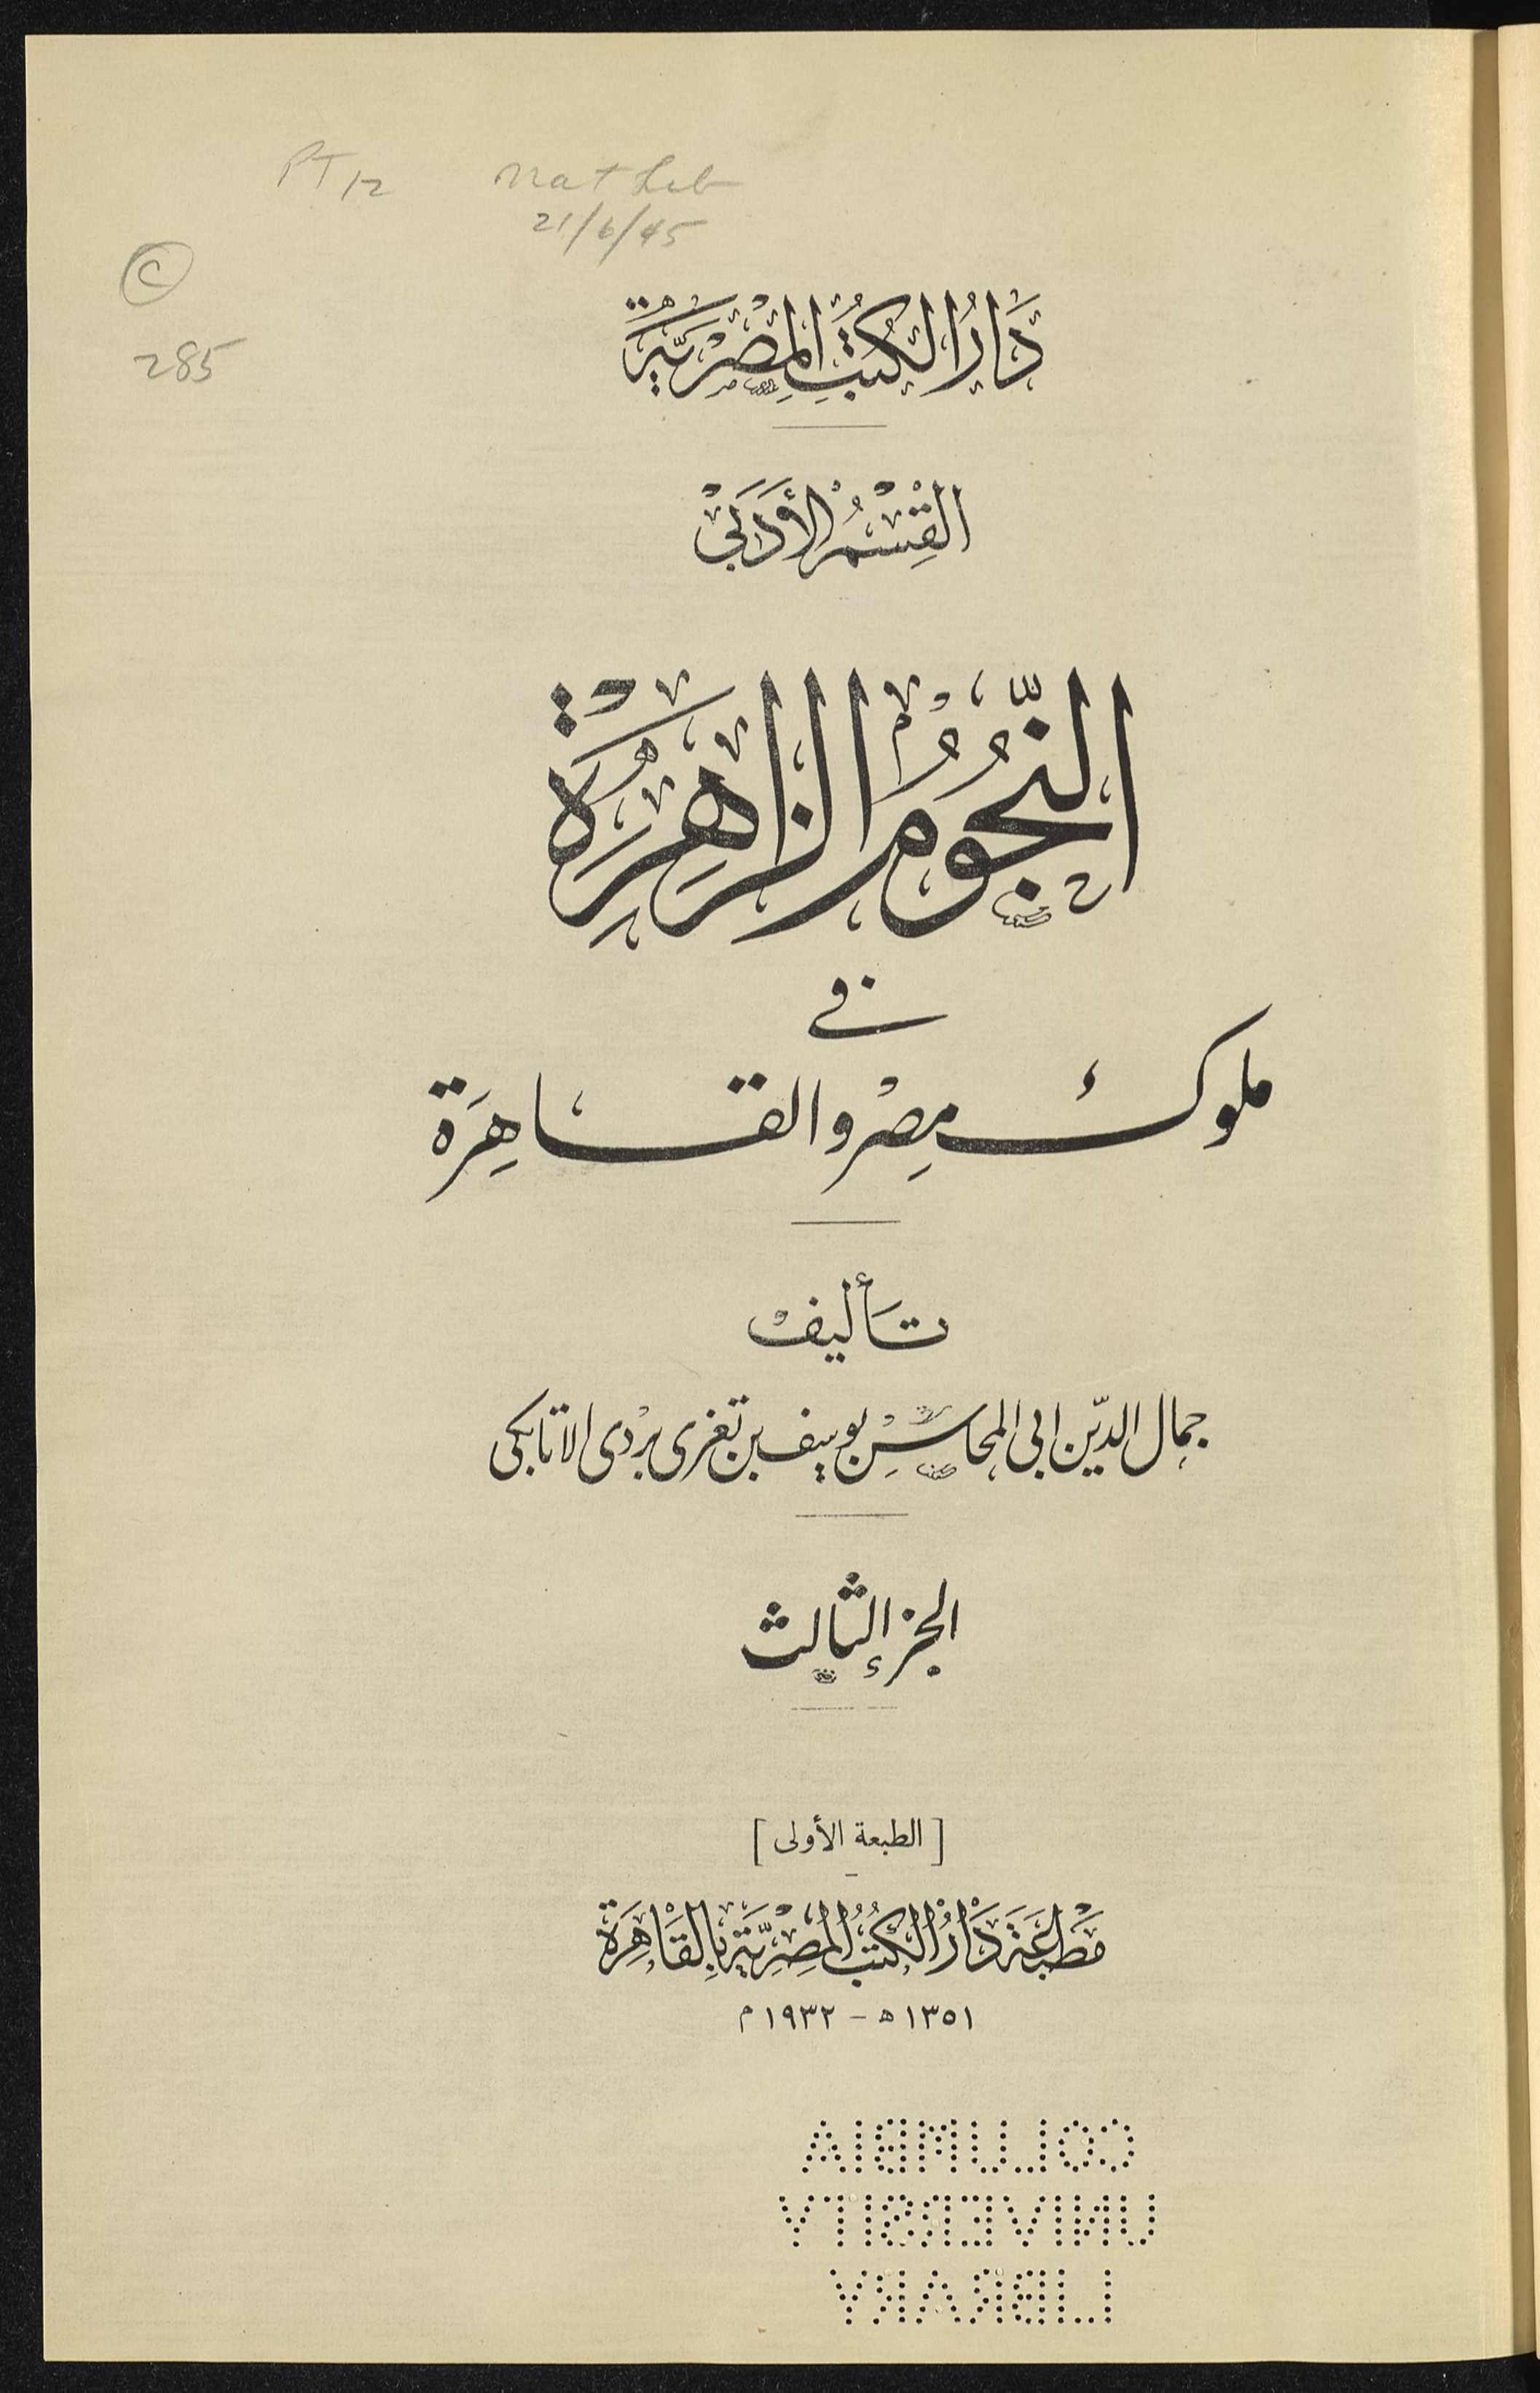 PT 12 Nat Lib
21/6/45
C
285
دَارُ الكُتُبِ المِصْرِيَّةِ
القِسْمُ الأَدَبِيْ
النُّجُومُ الزَاهِرَة
في
ملوك مِصْر والقاهِرَة
تأليفْ
جمال الدّين ابى المحاسِنْ يوسف بن تغرى برْدى الاتابكى
الجزء الثالث
[الطبعة الأولى]
مَطْبَعَة دَارُ الكُتُبِ المِصْرِيَّة بِالقَاهِرَة
١٣٥١ ه - ١٩٣٢ م
COLUMBIA
UNIVERSITY
LIBRARY